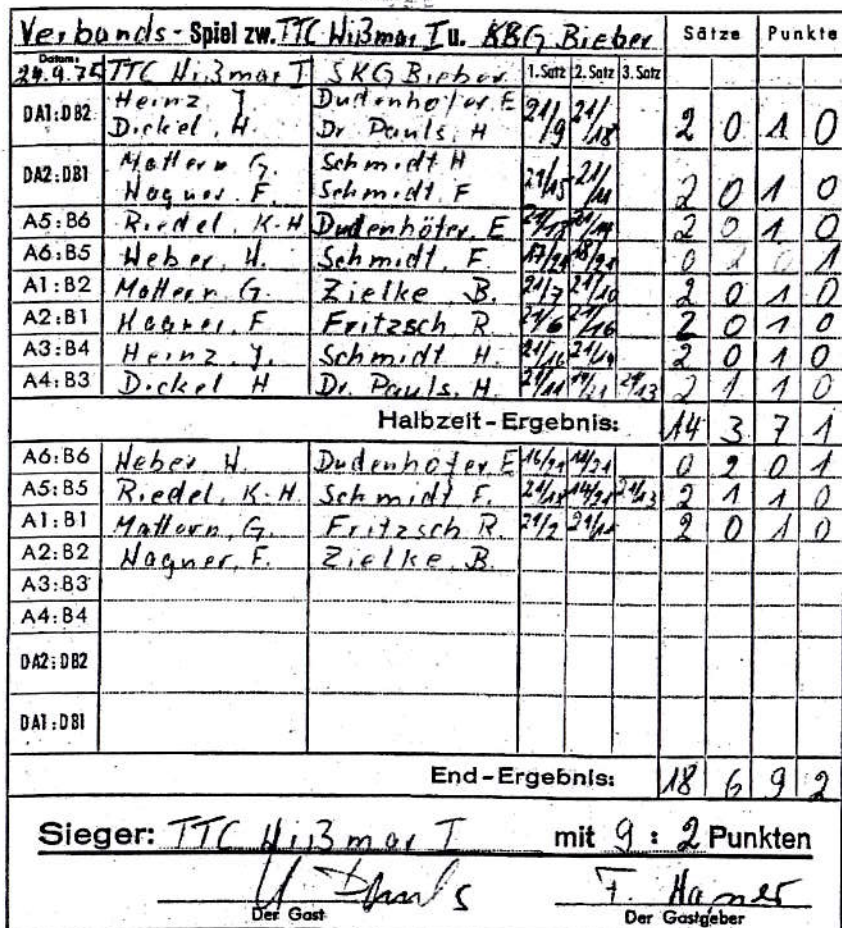 Verbands-Spiel zw. TTC Wißmar I u. KBG Bieber Sätze Punkte
Datum: 24.9.75 TTC Wißmar I SKG Bieber 1. Satz 2. Satz 3. Satz
DA1:DB2 Heinz, J. Dudenhöfer, E 21/9 21/18 2 0 1 0
Dickel, H. Dr. Pauls, H
DA2:DB1 Mattern G. Schmidt H 21/15 21/11 2 0 1 0
Wagner, F. Schmidt, F
A5:B6 Riedel, K-H Dudenhöfer, E 2 0 1 0
A6:B5 Weber, H. Schmidt, F 17/21 18/21 0 2 0 1
A1:B2 Mattern G. Zielke, B. 21/7 21/10 2 0 1 0
A2:B1 Wagner, F Fritzsch R. 21/6 21/16 2 0 1 0
A3:B4 Heinz, J. Schmidt H. 21/16 21/14 2 0 1 0
A4:B3 Dickel H Dr. Pauls, H. 21/11 19/21 21/13 2 1 1 0
Halbzeit-Ergebnis: 14 3 7 1
A6:B6 Weber, H. Dudenhöfer, E 16/21 14/21 0 2 0 1
A5:B5 Riedel, K-H. Schmidt F. 21/18 14/21 21/13 2 1 1 0
A1:B1 Mattern, G. Fritzsch R. 21/2 2 0 1 0
A2:B2 Wagner, F. Zielke, B.
A3:B3
A4:B4
DA2:DB2
DA1:DB1
End-Ergebnis: 18 6 9 2
Sieger: TTC Wißmar I mit 9 : 2 Punkten
H Pauls F. Wagner
Der Gast Der Gastgeber